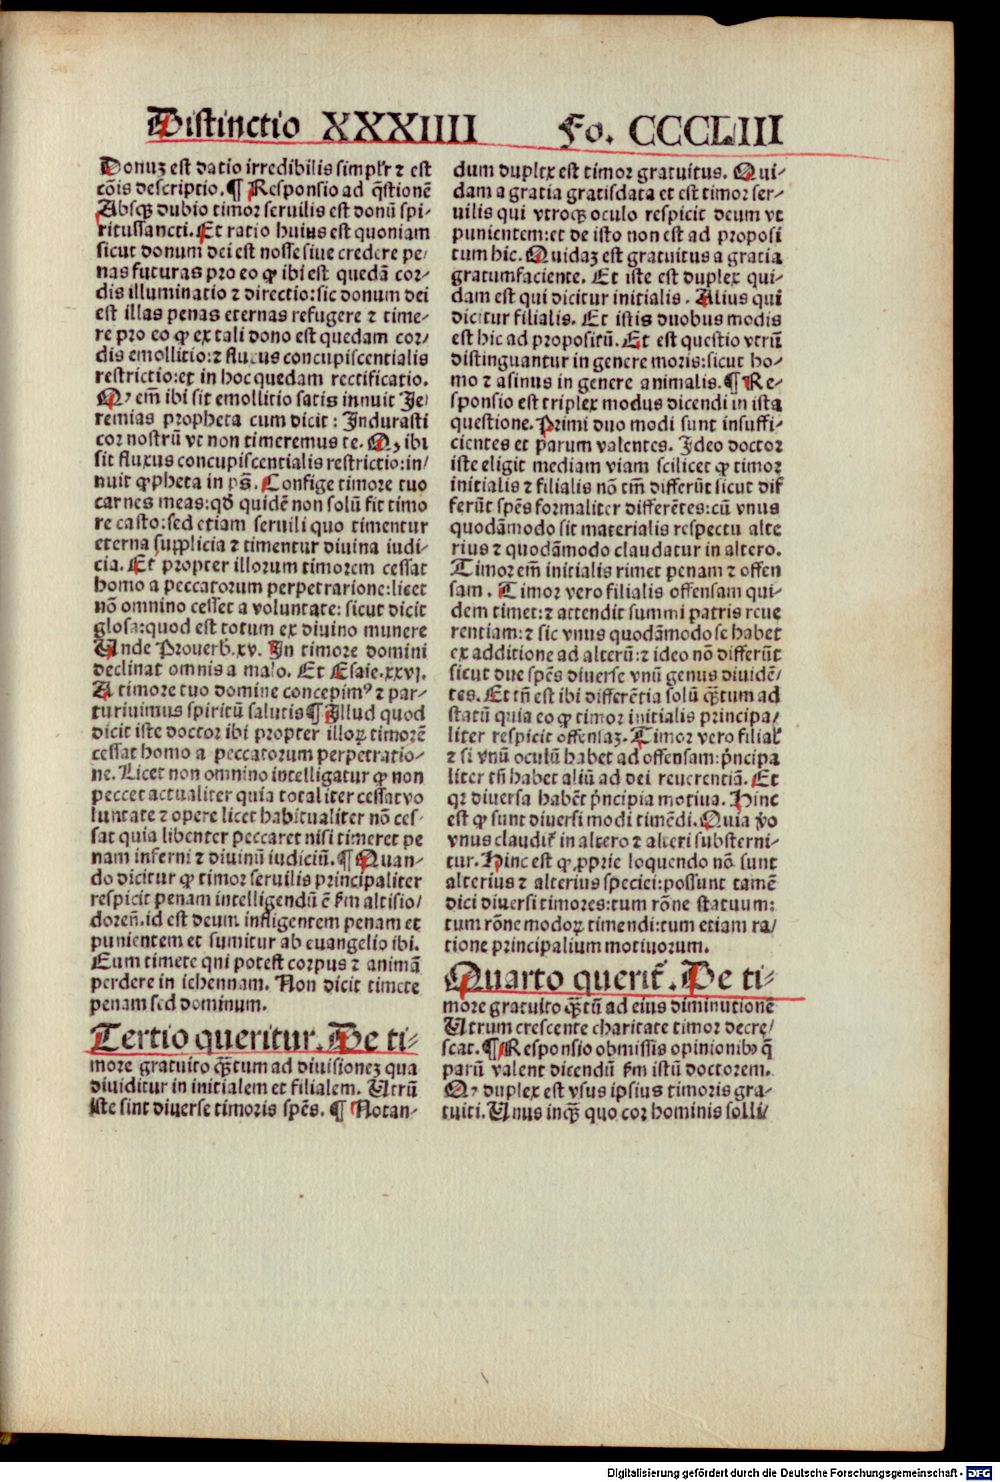 Distinctio XXXIIII Fo. CCCLIII
Donuʒ est datio irredibilis simplr̄ ⁊ est
cōis descriptio.¶ Responsio ad q̄stionē
Absqꝫ dubio timor seruilis est donū spi-
ritussancti. Et ratio huius est quoniam
sicut donum dei est nosse siue credere pe-
nas futuras pro eo ꝙ ibi est quedā cor-
dis illuminatio ⁊ directio: sic donum dei
est illas penas eternas refugere ⁊ time-
re pro eo ꝙ ex tali dono est quedam cor-
dis emollitio: ⁊ fluxus concupiscentialis
restrictio: ex in hoc quedam rectificatio.
Qꝫ em̄ ibi sit emollitio satis innuit Je/
remias propheta cum dicit: Indurasti
cor nostrū vt non timeremus te. Qꝫ ibi
sit fluxus concupiscentialis restrictio: in/
nuit ꝓpheta in ps̄. Confige timore tuo
carnes meas: qđ quidē non solū fit timo
re casto: sed etiam seruili quo timentur
eterna supplicia ⁊ timentur diuina iudi-
cia. Et propter illorum timorem cessat
homo a peccatorum perpetrarione: licet
nō omnino cesset a voluntate: sicut dicit
glosa: quod est totum ex diuino munere
Unde Prouerb̄.xv. In timore domini
declinat omnis a malo. Et Esaie.xxvj.
A timore tuo domine concepimꝰ ⁊ par-
turiuimus spiritū salutis ¶ Illud quod
dicit iste doctor ibi propter illoꝝ timorē
cessat homo a peccatorum perpetratio-
ne. Licet non omnino intelligatur ꝙ non
peccet actualiter quia totaliter cessat vo
luntate ⁊ opere licet habitualiter nō ces-
sat quia libenter peccaret nisi timeret pe
nam inferni ⁊ diuinū iudiciū. ¶ Quan-
do dicitur ꝙ timor seruilis principaliter
respicit penam intelligendū ē ẜm altisio/
doreñ. id est deum infligentem penam et
punientem et sumitur ab euangelio ibi.
Eum timete qni potest corpus ⁊ animā
perdere in iehennam. Non dicit timete
penam sed dominum.
Tertio queritur. De ti-
more gratuito q̄ꝫtum ad diuisioneʒ qua
diuiditur in initialem et filialem. Utrū
iste sint diuerse timoris sp̄es. ¶ Notan-
dum duplex est timor gratuitus. Qui-
dam a gratia gratisdata et est timor ser-
uilis qui vtroqꝫ oculo respicit deum vt
punientem: et de isto non est ad proposi
tum hic. Quidaʒ est gratuitus a gratia
gratumfaciente. Et iste est duplex qui-
dam est qui dicitur initialis. Alius qui
dicitur filialis. Et istis duobus modis
est hic ad propositū. Et est questio vtrū
distinguantur in genere moris: sicut ho-
mo ⁊ asinus in genere animalis. ¶ Re-
sponsio est triplex modus dicendi in ista
questione. Primi duo modi sunt insuffi-
cientes et parum valentes. Ideo doctor
iste eligit mediam viam scilicet ꝙ timor
initialis ⁊ filialis nō tm̄ differūt sicut dif
ferūt sp̄es formaliter differētes: cū vnus
quodāmodo sit materialis respectu alte
rius ⁊ quodāmodo claudatur in altero.
Timor em̄ initialis rimet penam ⁊ offen
sam. Timor vero filialis offensam qui-
dem timet: ⁊ attendit summi patris reue
rentiam: ⁊ sic vnus quodāmodo se habet
ex additione ad alterū: ⁊ ideo nō differūt
sicut due spēs diuerse vnū genus diuidē/
tes. Et tn̄ est ibi differētia solū q̄ꝫtum ad
statū quia eo ꝙ timor initialis principa/
liter respicit offensaʒ. Timor vero filial̄
⁊ si vnū oculū habet ad offensam: p̄ncipa
liter tn̄ habet aliū ad dei reuerentiā. Et
qꝛ diuersa habēt p̄ncipia motiua. Hinc
est ꝙ sunt diuersi modi timēdi. Quia v̄o
vnus claudit̄ in altero ⁊ alteri substerni-
tur. Hinc est ꝙ ꝓprie loquendo nō sunt
alterius ⁊ alterius speciei: possunt tamē
dici diuersi timores: tum rōne statuum:
tum rōne modoꝝ timendi: tum etiam ra/
tione principalium motiuorum.
Quarto querit̄. De ti-
more gratuito q̄ꝫtū ad eius diminutionē
Utrum crescente charitate timor decre/
scat. ¶ Responsio obmissis opinionibꝰ q̄
parū valent dicendū ẜm istū doctorem.
Qꝫ duplex est vsus ipsius timoris gra-
tuiti. Unus inqꝫ quo cor hominis solli/
Digitalisierung gefördert durch die Deutsche Forschungsgemeinschaft - DFG